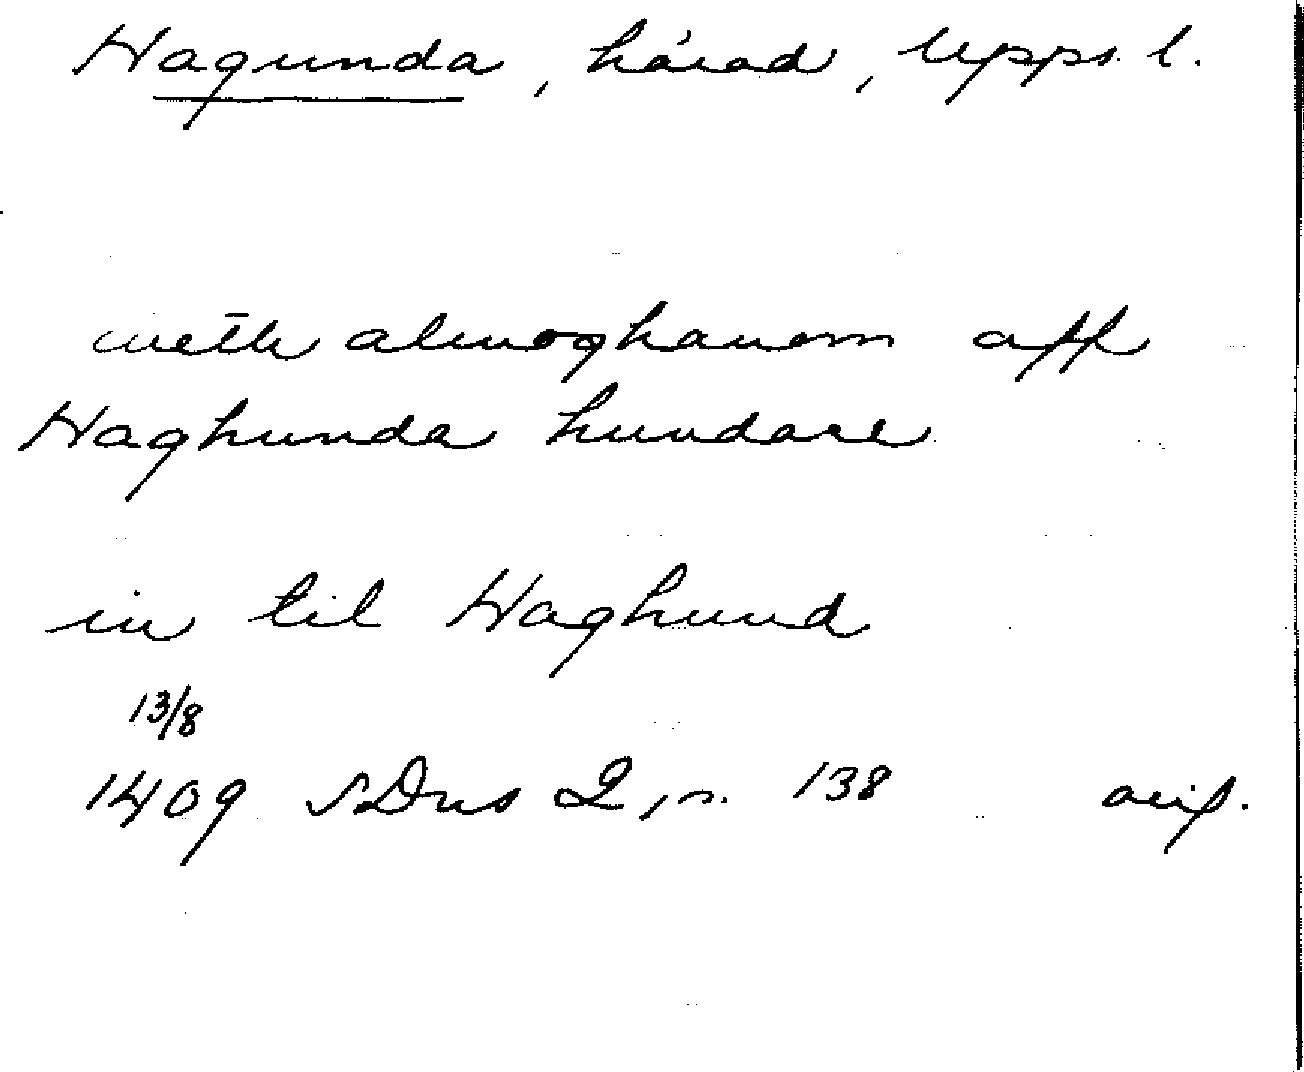 Hagunda, härad, Upps. l.
meth almoghanom aff
Haghunda hundare
in til Haghund
13/8
1409 SDns 2, s. 138 avskr.